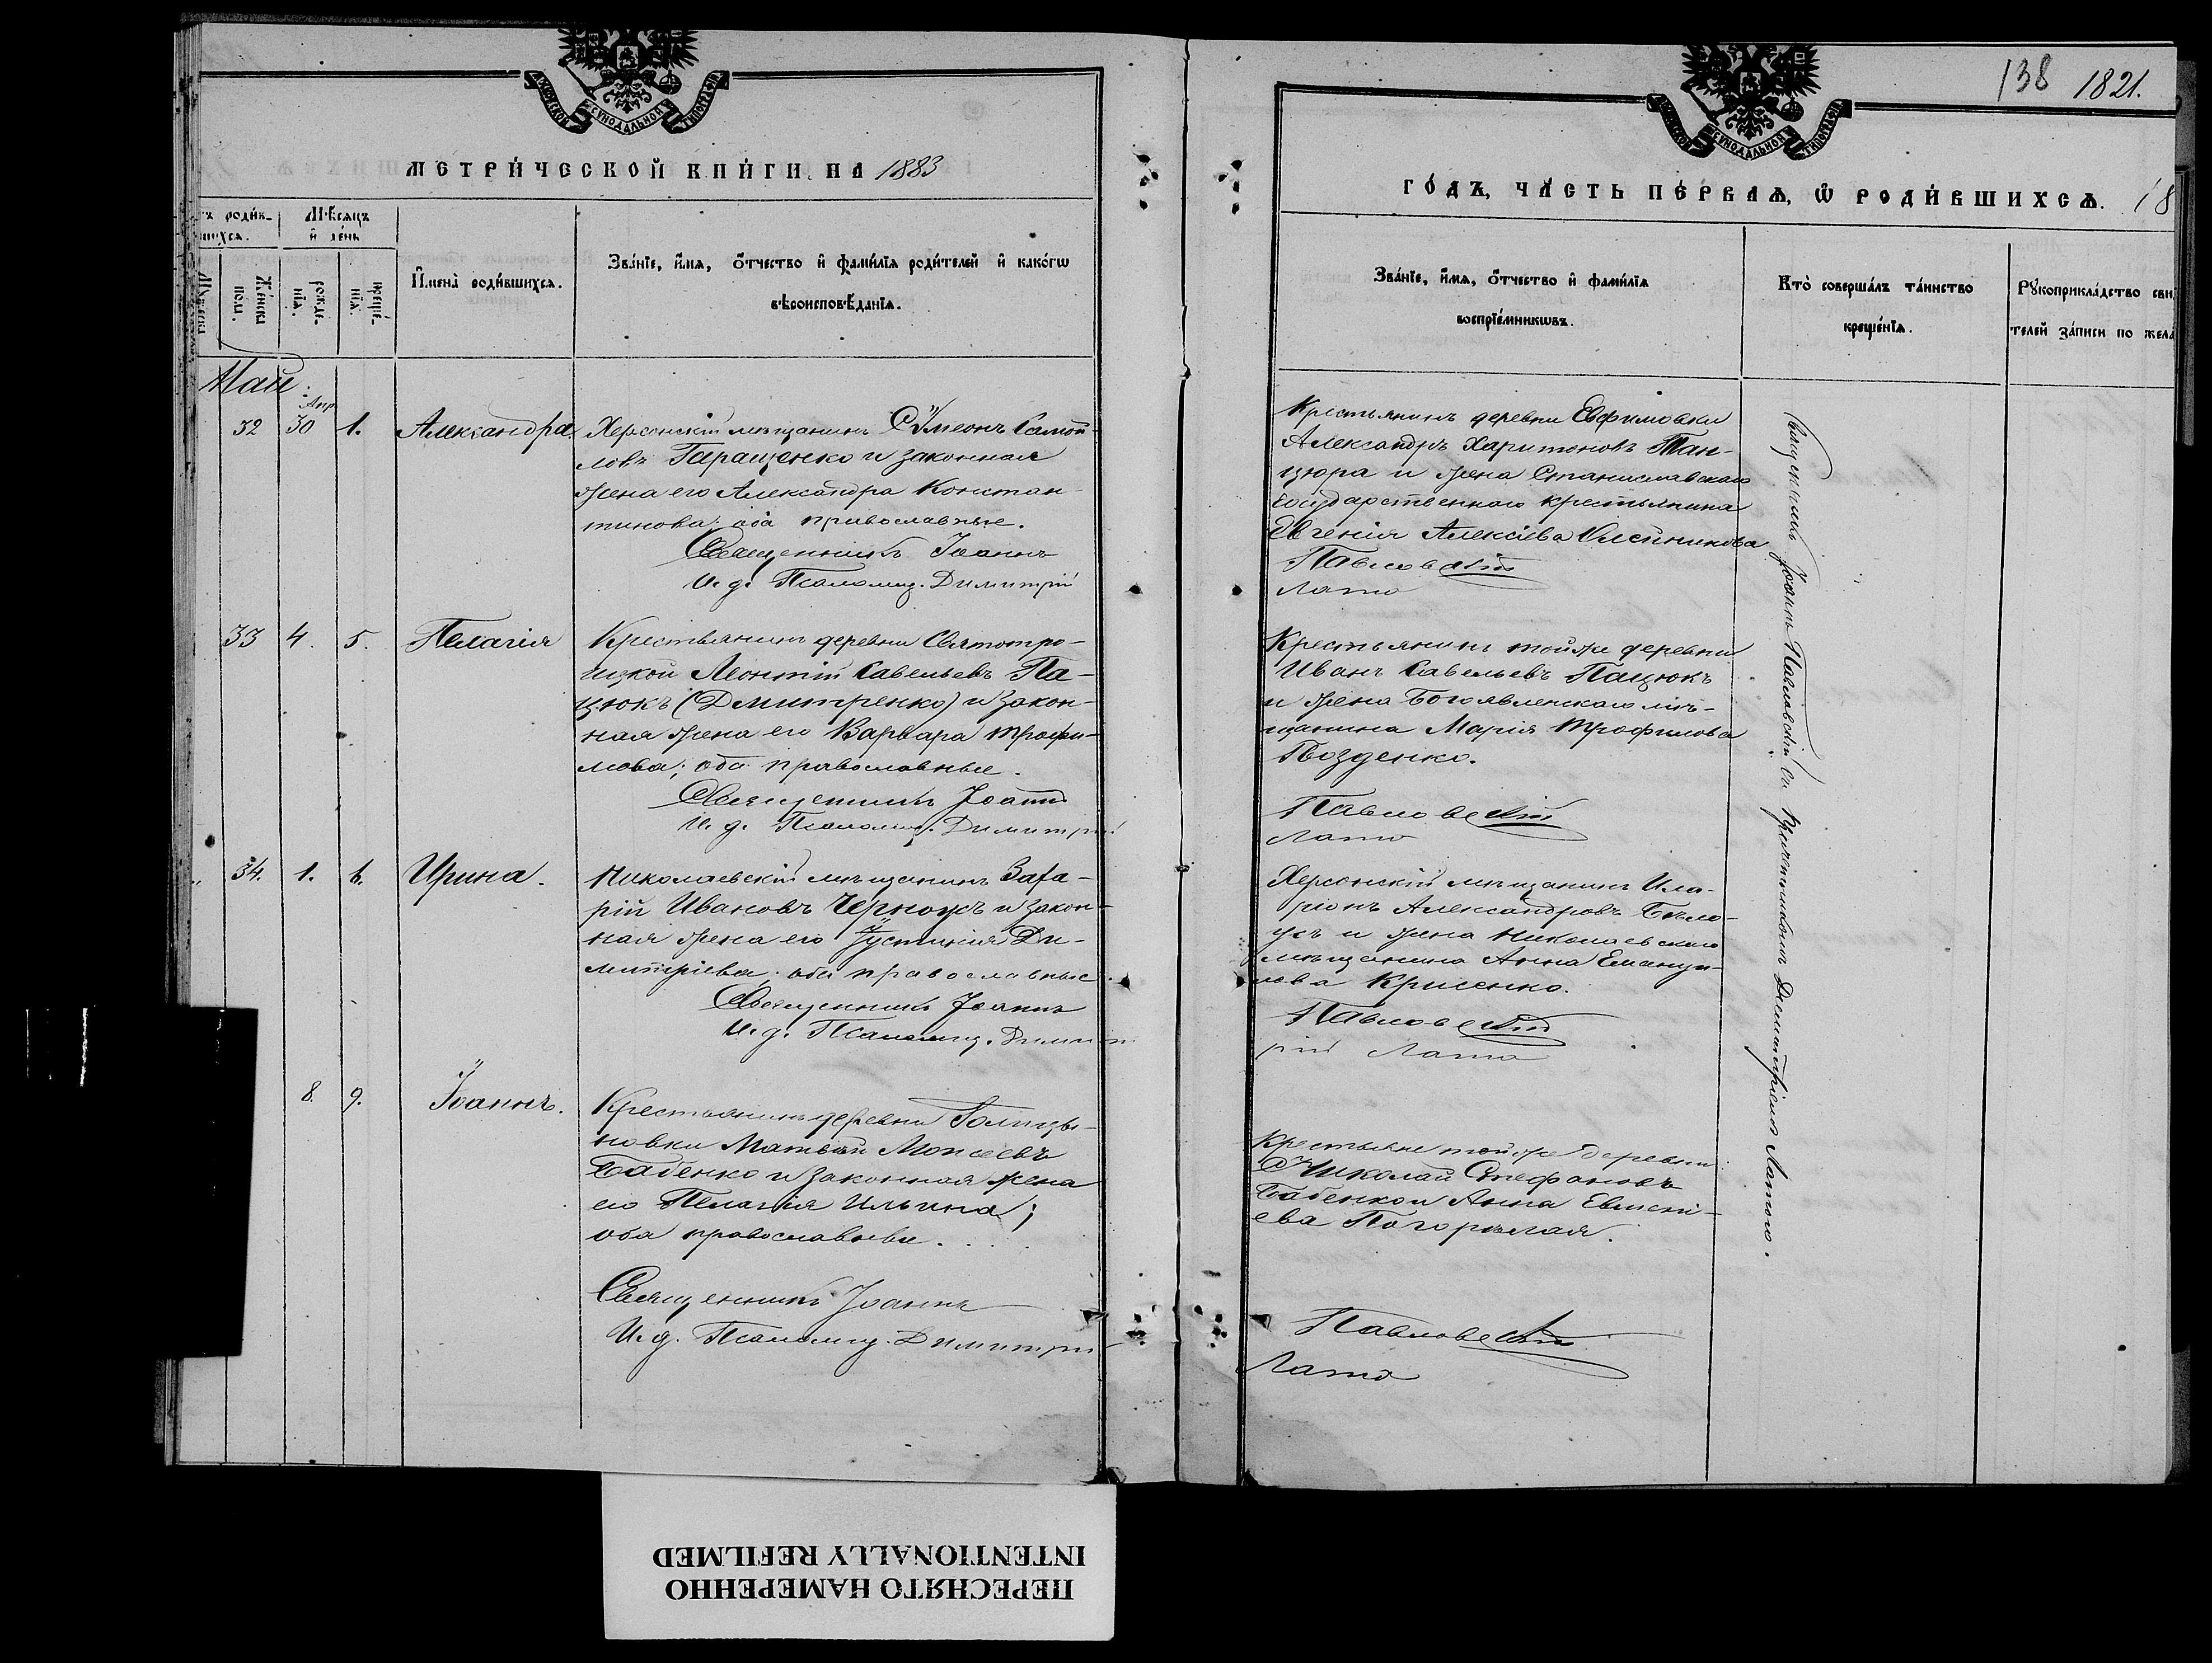 138 1821.
МЕТРИ́ЧЕСКОЙ КНИ́ГИ НА 1883
ГО́ДЪ, ЧА́СТЬ ПЕ́РВАѦ, Ѡ҆ РОДИ́ВШИХСѦ. 18
Мѣ́сѧцъ
и҆ де́нь
Же́нска
по́ла.
рожде-
нїѧ.
креще́-
нїѧ.
И҆мена̀ роди́вшихсѧ.
Зва́нїе, и҆́мѧ, ѻ҆́тчество и҆ фамі́лїѧ роди́телей и҆ како́гѡ
вѣроисповѣ́данїѧ.
Зва́нїе, и҆́мѧ, ѻ҆́тчество и҆ фамі́лїѧ
воспрїе́мникѡвъ.
Кто̀ соверша́лъ та́инство
креще́нїѧ.
Рꙋкоприкла́дство сви
телей за́писи по жела
Май.
Апр.
32 30 1. Александра.
Херсонскій мѣщанинъ Сѵмеонъ Самой-
ловъ Таращенко и законная
жена его Александра Констан-
тинова; оба православные.
Священникъ Іоаннъ
И. д. Псаломщ. Димитрій
Крестьянинъ деревни Евфимовки
Александръ Харитоновъ Тан-
цюра и жена Станиславскаго
Государственнаго крестьянина
Евгенія Алексіева Олейникова
Павловскій
Лато
33 4. 5. Пелагія
Крестьянинъ деревни Святотро-
ицкой Леонтій Савельевъ Па-
цюкъ (Дмитренко) и закон-
ная жена его Варвара Трофи-
мова; оба православные.
Священникъ Іоаннъ
И. д. Псаломщ. Димитрій
Крестьянинъ той же деревни
Иванъ Савельевъ Пацюкъ
и жена Богоявленскаго мѣ-
щанина Марія Трофимова
Гвозденко.
Павловскій
Лато
34. 1. 6. Ирина.
Николаевскій мѣщанинъ Заха-
рій Ивановъ Черноусъ и закон-
ная жена его Іустинія Ди-
митріева; оба православные.
Священникъ Іоаннъ
И. д. Псаломщ. Димит
Херсонскій мѣщанинъ Ила-
ріонъ Александровъ Бѣло-
усъ и жена Николаевскаго
мѣщанина Анна Емануи-
лова
Павловскій
рій Лато
8. 9. Іоаннъ.
Крестьянинъ деревни Голицы-
новки Матвѣй Моисеевъ
Бабенко и законная жена
его Пелагія Ильина;
оба православные.
Священникъ Іоаннъ
И. д. Псаломщ. Димитрій
Крестьяне той же деревни:
Николай Стефановъ
Бабенко и Анна Евмені-
ева Погорѣлая.
Павловскій
Лато
Священникъ Іоаннъ Павловскій съ Причетникомъ Димитріемъ Латою.
ПЕРЕСНЯТО НАМЕРЕННО
INTENTIONALLY REFILMED